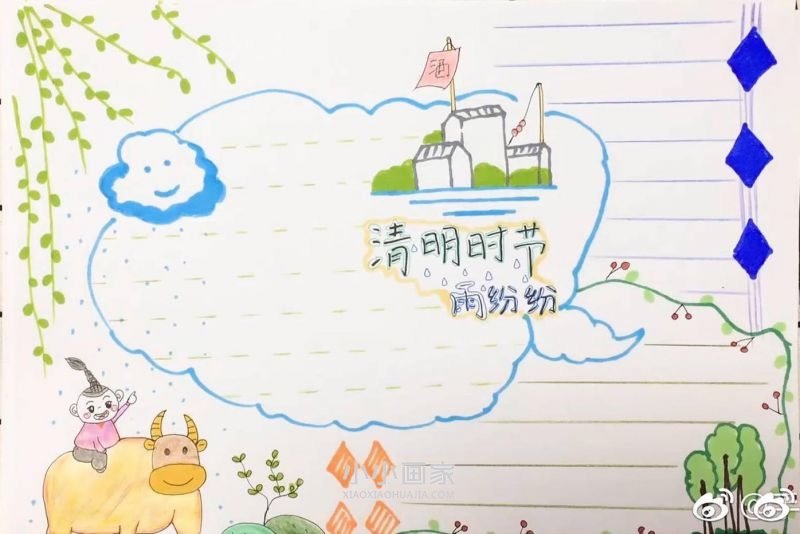 酒
清明时节
雨纷纷
小小画家
XIAOXIAOHUAJIA.COM